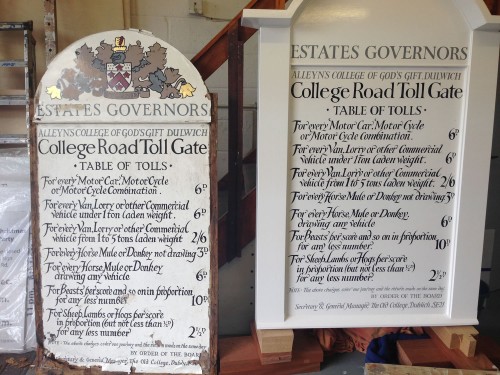 ESTATES GOVERNORS
ALLEYN'S COLLEGE OF GOD'S GIFT, DULWICH
College Road Toll Gate
• TABLE OF TOLLS •
For every Motor Car, Motor Cycle
or Motor Cycle Combination . 6D
For every Van, Lorry or other Commercial
vehicle under 1 ton laden weight. 6D
For every Van, Lorry or other Commercial
vehicle from 1 to 5 tons laden weight 2/6
For every Horse, Mule or Donkey not drawing 3D
For every Horse, Mule or Donkey
drawing any vehicle 6D
For Beasts per score and so on in proportion
for any less number 10D
For Sheep, Lambs or Hogs per score
in proportion (but not less than ½D)
for any less number 2½D
NOTE - The above charges cover one journey and the return made on the same day
BY ORDER OF THE BOARD
Secretary & General Manager, The Old College, Dulwich,
ESTATES GOVERNORS
ALLEYN'S COLLEGE OF GOD'S GIFT, DULWICH
College Road Toll Gate
• TABLE OF TOLLS •
For every Motor Car, Motor Cycle
or Motor Cycle Combination. 6D
For every Van, Lorry or other Commercial
vehicle under 1 ton laden weight. 6D
For every Van, Lorry or other Commercial
vehicle from 1 to 5 tons laden weight. 2/6
For every Horse, Mule or Donkey not drawing 3D
For every Horse, Mule or Donkey,
drawing any vehicle 6D
For Beasts per score and so on in proportion
for any less number. 10D
For Sheep, Lambs or Hogs per score
in proportion (but not less than ½D)
for any less number. 2½D
NOTE - The above charges cover one journey and the return made on the same day
BY ORDER OF THE BOARD
Secretary & General Manager, The Old College, Dulwich, SE21